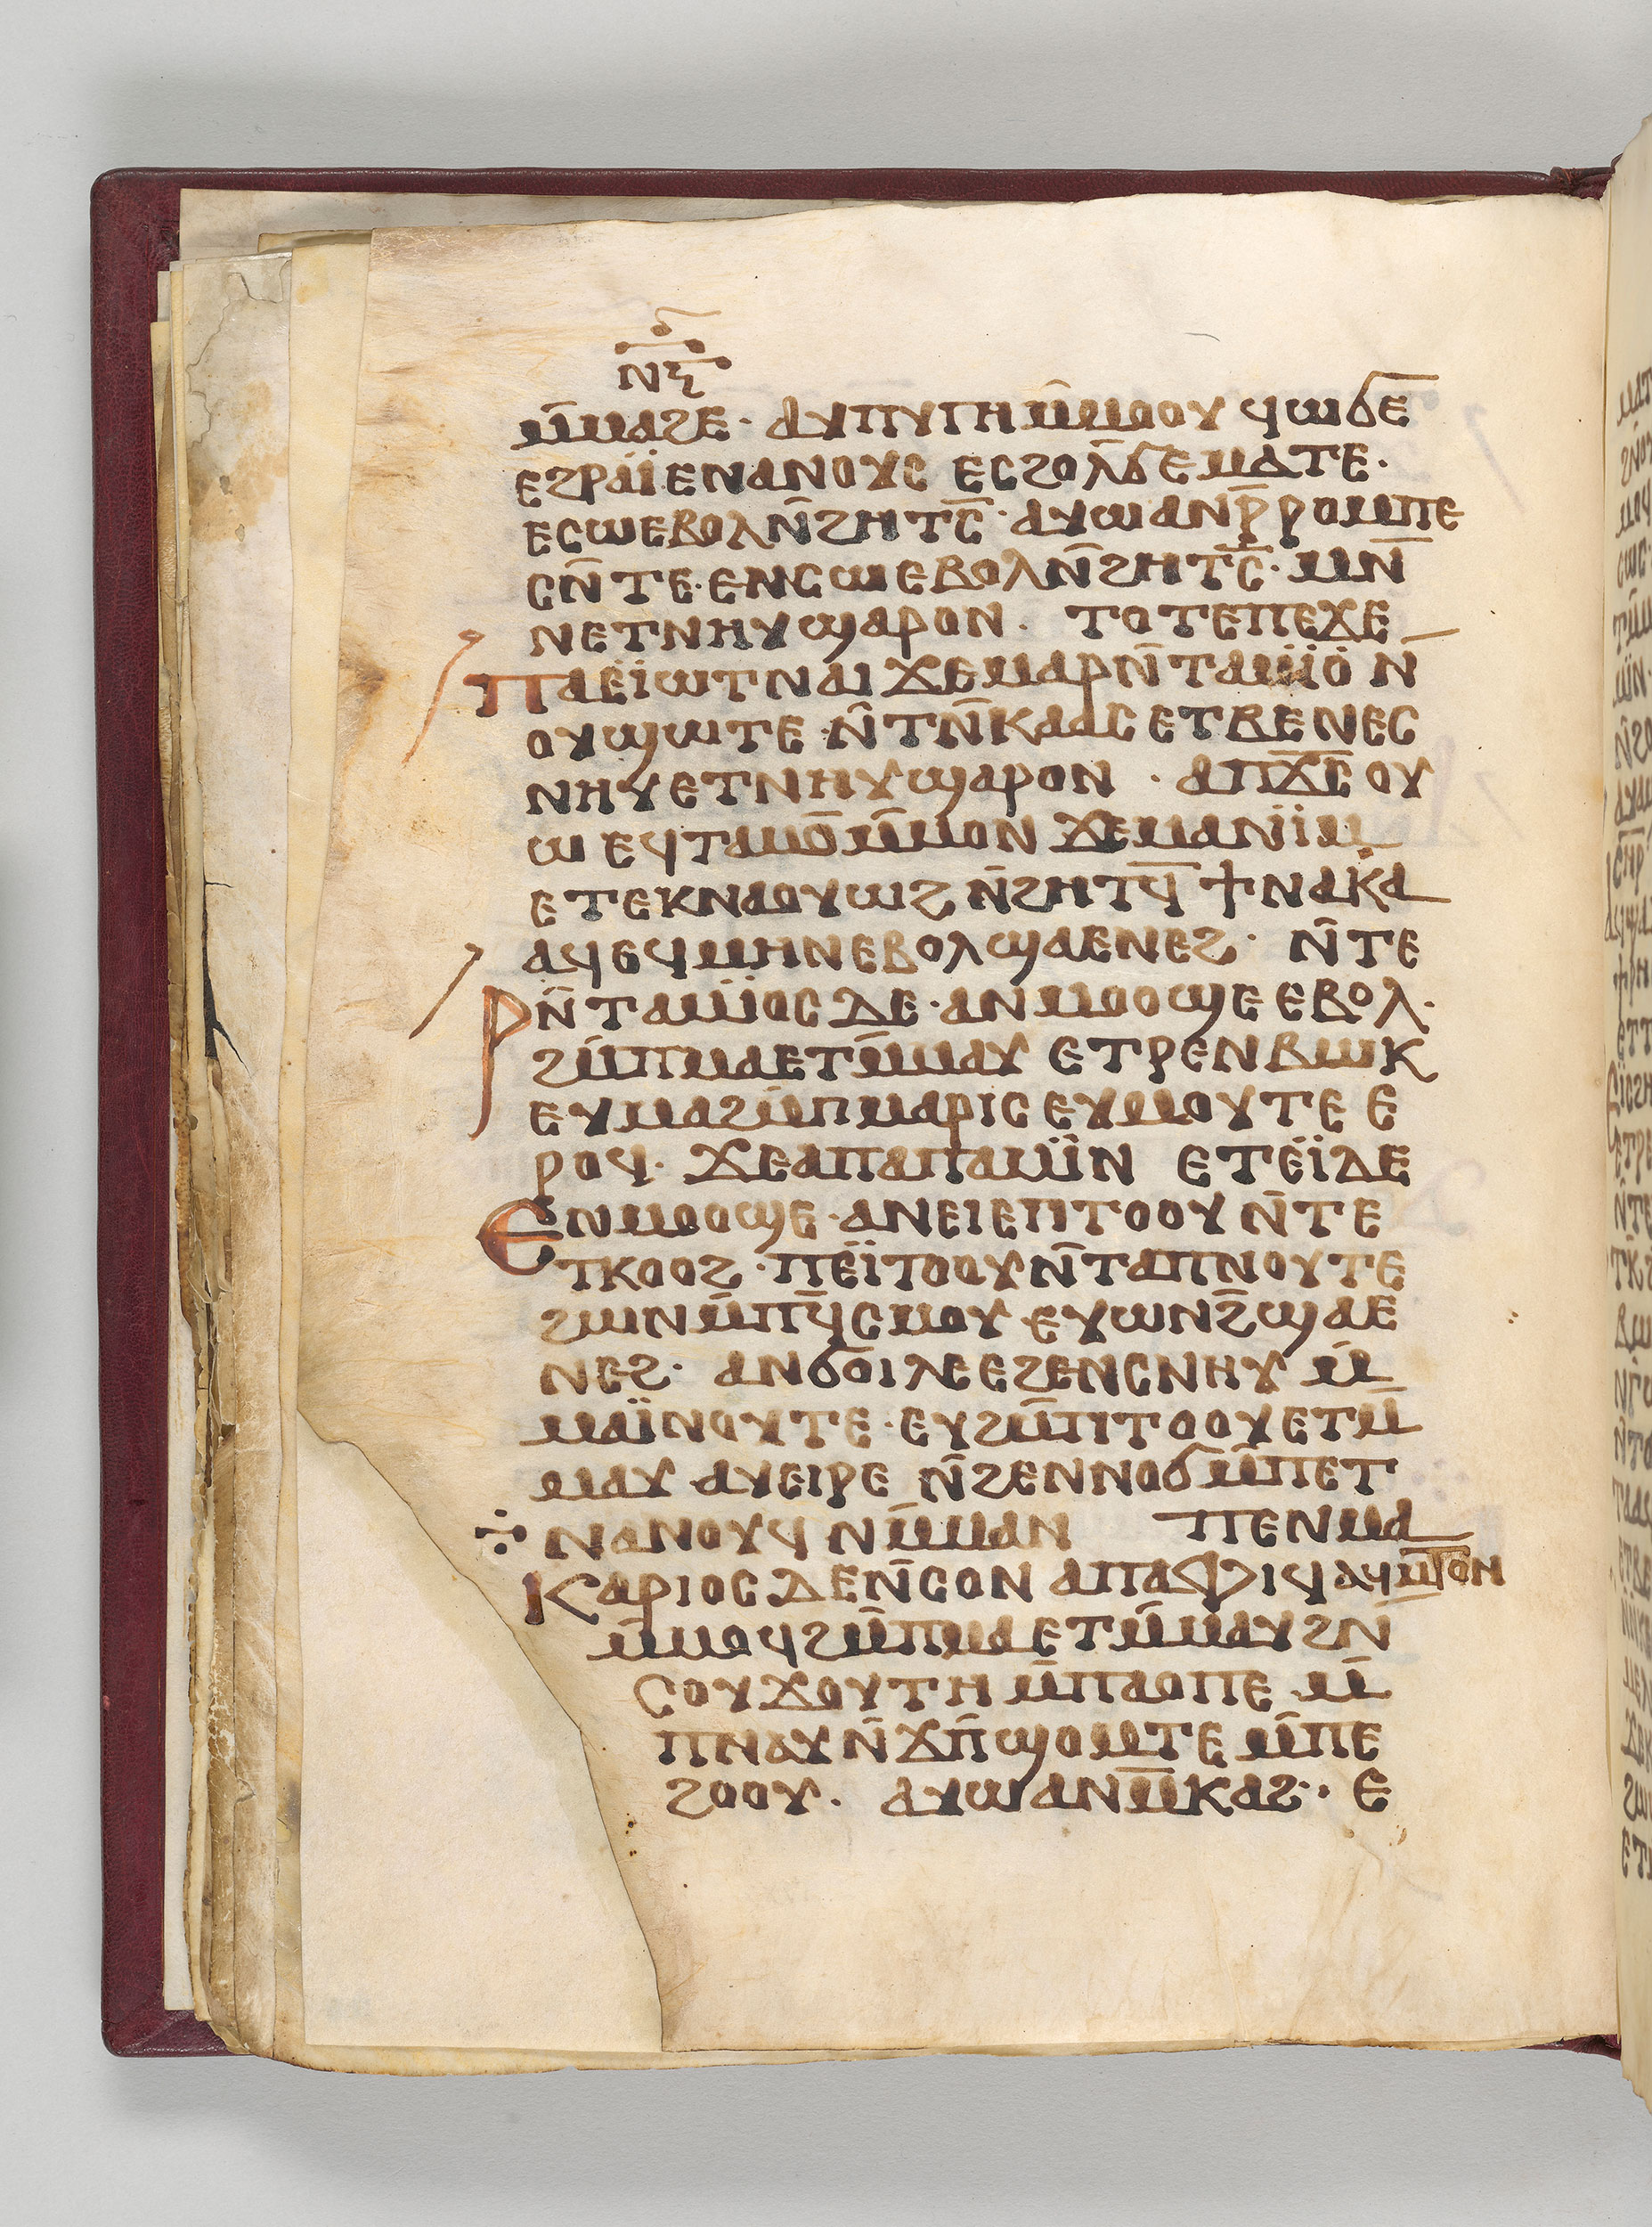 ⲛ̅ⳅ̅
ⲙ̅ⲙⲁϩⲉ · ⲁⲩⲡⲩⲅⲏ ⲙ̅ⲙⲟⲟⲩ ϥⲱϭⲉ
ⲉϩⲣⲁⲓ̈ ⲉⲛⲁⲛⲟⲩⲥ ⲉⲥϩⲟⲗϭⲉⲙⲁⲧⲉ ·
ⲉⲥⲱⲉⲃⲟⲗⲛ̅ϩⲏⲧⲥ̅ · ⲁⲩⲱⲁⲛⲣ̅ⲣⲟⲙⲡⲉ
ⲥⲛ̅ⲧⲉ · ⲉⲛⲥⲱⲉⲃⲟⲗⲛ̅ϩⲏⲧⲥ̅ · ⲙⲛ̅
ⲛⲉⲧⲛⲏⲩϣⲁⲣⲟⲛ · ⲧⲟⲧⲉⲡⲉϫⲉ
ⲡⲁⲉⲓ̈ⲱⲧⲛⲁⲓ ϫⲉⲙⲁⲣⲛ̅ⲧⲁⲙⲓ̈ⲟ ⲛ̅
ⲟⲩϣⲱⲧⲉ · ⲛ̅ⲧⲛ̅ⲕⲁⲁⲥ ⲉⲧⲃⲉⲛⲉⲥ
ⲛⲏⲩⲉⲧⲛⲏⲩϣⲁⲣⲟⲛ · ⲁⲡϫⲉ̅ⲟⲩ
ⲱ ⲉϥⲧⲁⲙⲟ̅ⲙ̅ⲙⲟⲛ ϫⲉⲙⲁⲛⲓ̈ⲙ
ⲉⲧⲉⲕⲛⲁⲟⲩⲱϩ ⲛ̅ϩⲏⲧϥ̅ ϯⲛⲁⲕⲁ
ⲁϥⲉϥⲙⲏⲛⲉⲃⲟⲗϣⲁⲉⲛⲉϩ · ⲛ̅ⲧⲉ
ⲣⲛ̅ⲧⲁⲙⲓ̈ⲟⲥⲇⲉ · ⲁⲛⲙⲟⲟϣⲉⲉⲃⲟⲗ ·
ϩⲙ̅ⲡⲙⲁⲉⲧⲙ̅ⲙⲁⲩ ⲉⲧⲣⲉⲛⲃⲱⲕ
ⲉⲩⲙⲁϩⲙ̅ⲡⲙⲁⲣⲓⲥ ⲉⲩⲙⲟⲩⲧⲉ ⲉ
ⲣⲟϥ · ϫⲉⲁⲡⲁⲡⲁⲙⲓ̈ⲛ ⲉⲧⲉⲓ̈ⲇⲉ
ⲉⲛⲙⲟⲟϣⲉ · ⲁⲛⲉⲓⲉⲡⲧⲟⲟⲩ ⲛ̅ⲧⲉ
ⲧⲕⲟⲟϩ · ⲡⲉⲓ̈ⲧⲟⲟⲩⲛ̅ⲧⲁⲡⲛⲟⲩⲧⲉ
ϩⲱⲛ ⲙ̅ⲡϥ̅ⲥⲙⲟⲩ ⲉⲩⲱⲛϩ̅ϣⲁⲉ
ⲛⲉϩ · ⲁⲛϭⲟⲓⲗⲉⲉϩⲉⲛⲥⲛⲏⲩ ⲙ̅
ⲙⲁⲓ̈ⲛⲟⲩⲧⲉ · ⲉⲩϩⲙ̅ⲡⲧⲟⲟⲩⲉⲧⲙ̅
ⲙⲁⲩ ⲁⲩⲉⲓⲣⲉ ⲛ̅ϩⲉⲛⲛⲟϭⲙ̅ⲡⲉⲧ
ⲛⲁⲛⲟⲩϥ ⲛⲙ̅ⲙⲁⲛ ⲡⲉⲛⲙⲁ
ⲕⲁⲣⲓⲟⲥⲇⲉⲛ̅ⲥⲟⲛ ⲁⲡⲁⲫⲣⲓϥ ⲁϥⲙ̅ⲧⲟⲛ
ⲙ̅ⲙⲟϥϩⲙ̅ⲡⲙⲁⲉⲧⲙ̅ⲙⲁⲩ ϩⲛ̅
ⲥⲟⲩϫⲟⲩⲧⲏ ⲙ̅ⲡⲁⲟⲡⲉ ⲙ̅
ⲡⲛⲁⲩ ⲛ̅ϫⲡ̅ϣⲟⲙⲧⲉ ⲙ̅ⲡⲉ
ϩⲟⲟⲩ · ⲁⲩⲱⲁⲛⲙ̅ⲕⲁϩ · ⲉ